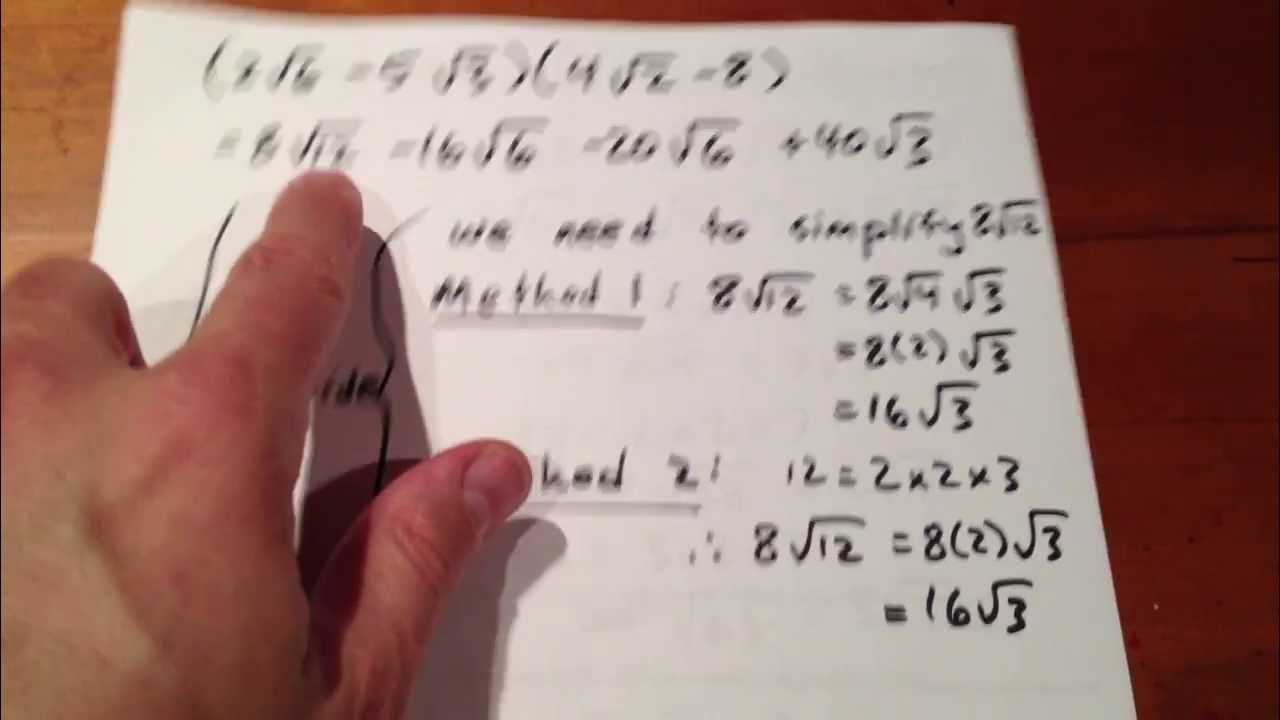 (2√6 - 5√3)(4√2 - 8)
= 8√12 - 16√6 - 20√6 + 40√3
we need to simplify 8√12
Method 1: 8√12 = 8√4 √3
= 8(2)√3
= 16√3
2: 12 = 2×2×3
∴ 8√12 = 8(2)√3
= 16√3